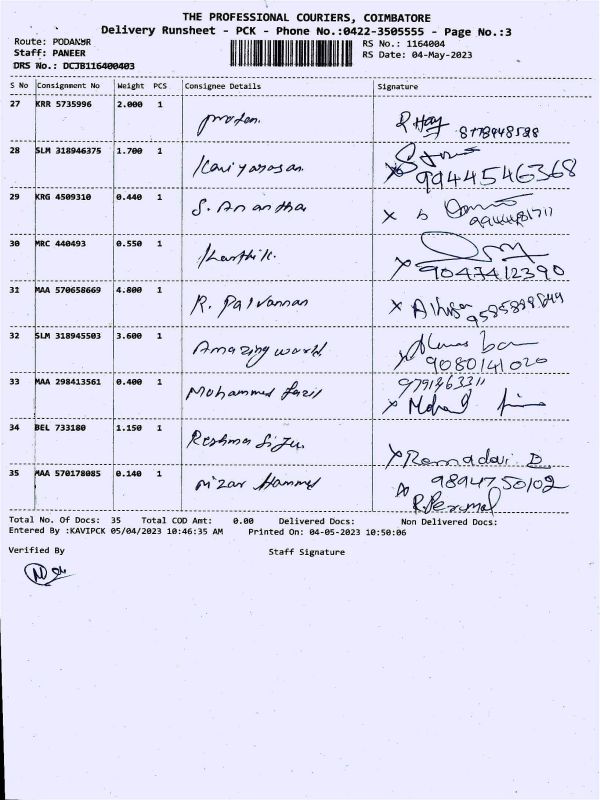 THE PROFESSIONAL COURIERS, COIMBATORE
Delivery Runsheet - PCK - Phone No.:0422-3505555 - Page No.:3
Route: PODANUR
RS No.: 1164004
Staff: PANEER
RS Date: 04-May-2023
DRS No.: DCJB116400403
S No Consignment No Weight PCS Consignee Details Signature
27 KRR 5735996 2.000 1
28 SLM 318946375 1.700 1 Kariyarasan
99445 46368
29 KRG 4509310 0.440 1 S. Anantha
30 MRC 440493 0.550 1 Karthik.
9047412390
31 MAA 570658669 4.800 1 R. Palvannan
32 SLM 318945503 3.600 1 Amazing world
9080141020
33 MAA 298413561 0.400 1 Mohammed fazil
9791463311
34 BEL 733180 1.150 1 Reshma Siju.
Ramadevi B
35 MAA 570178085 0.140 1 Nizar Hammed
9894750102
R. Perumal
Total No. Of Docs: 35 Total COD Amt: 0.00 Delivered Docs: Non Delivered Docs:
Entered By :KAVIPCK 05/04/2023 10:46:35 AM Printed On: 04-05-2023 10:50:06
Verified By Staff Signature